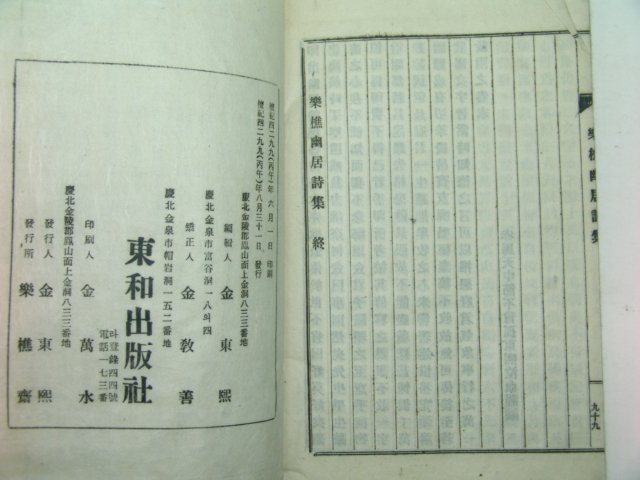 樂樵幽居詩集
九十九
樂樵幽居詩集 終
檀紀四二九九(丙午)年 六月 一日 印刷
檀紀四二九九(丙午)年 八月三十一日 發行
慶北金陵郡鳳山面上金洞八三三番地
編輯人 金東熙
慶北金泉市富谷洞一八의四
矯正人 金敎善
慶北金泉市帽岩洞一五二番地
東和出版社
라登錄四四號
電話一七三番
印刷人 金萬水
慶北金陵郡鳳山面上金洞八三三番地
發行人 金東熙
發行所 樂樵齋